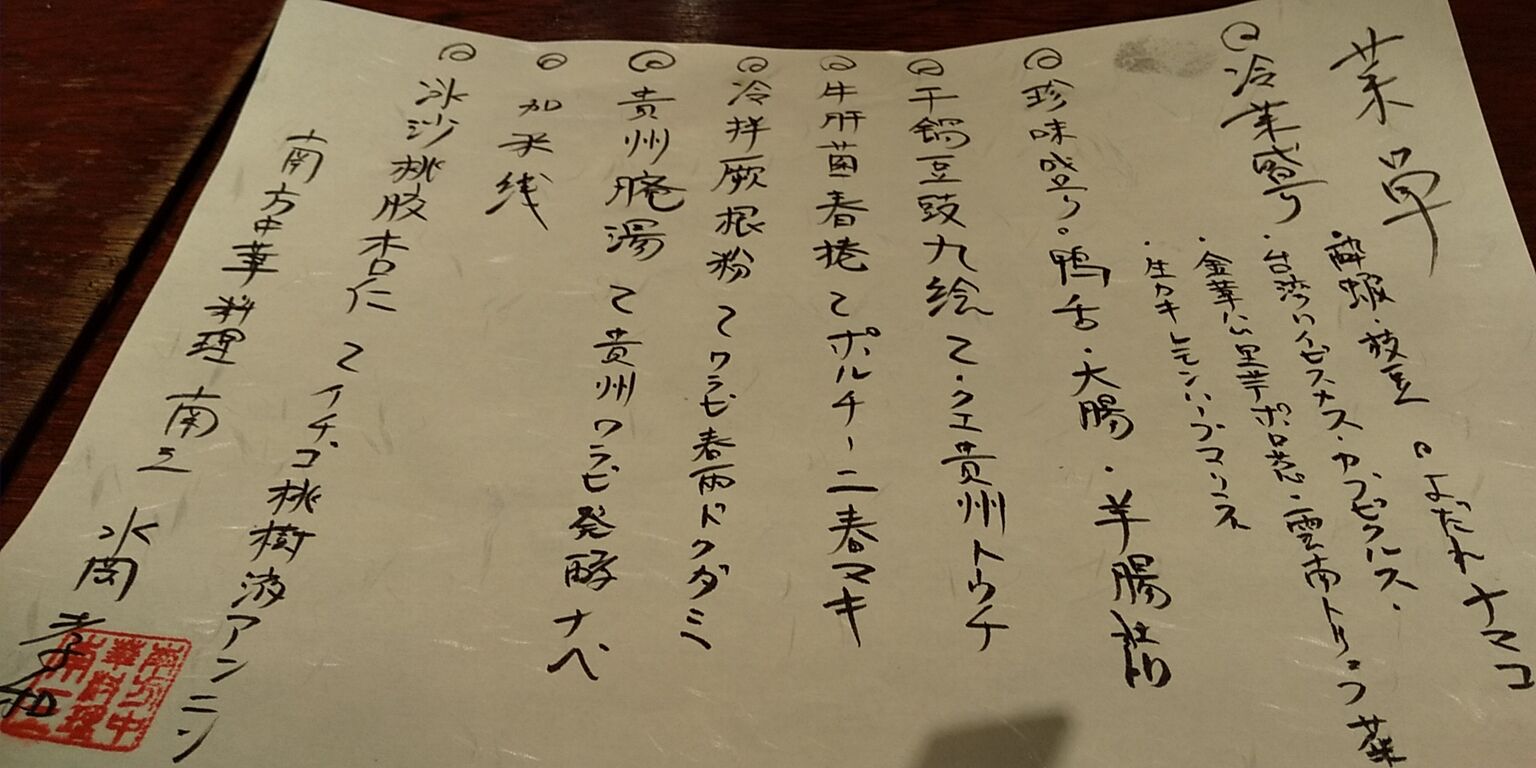 菜単
◎冷菜彎
・酔蝦・枝豆 ◎よだれナマコ
・台湾ハイビスカス・カラピクルス・
・金華ハム里芋ポロ葱・雲南トリュフ菜
・生カキレモンハーブマリネ
◎珍味盛り。鴨舌・大腸・羊腸
◎干鍋豆豉九絵 て・クエ貴州トウチ
◎牛肝菌春捲 てポルチーニ春マキ
◎冷拌厥根粉 てワラビ春雨ドクダミ
◎貴州腌湯 て貴州ワラビ発酵ナベ
◎加米线
◎冰沙桃胶杏仁 てイチゴ桃樹液アンニン
南方中華料理 南三 水岡孝和
南方中華料理南三